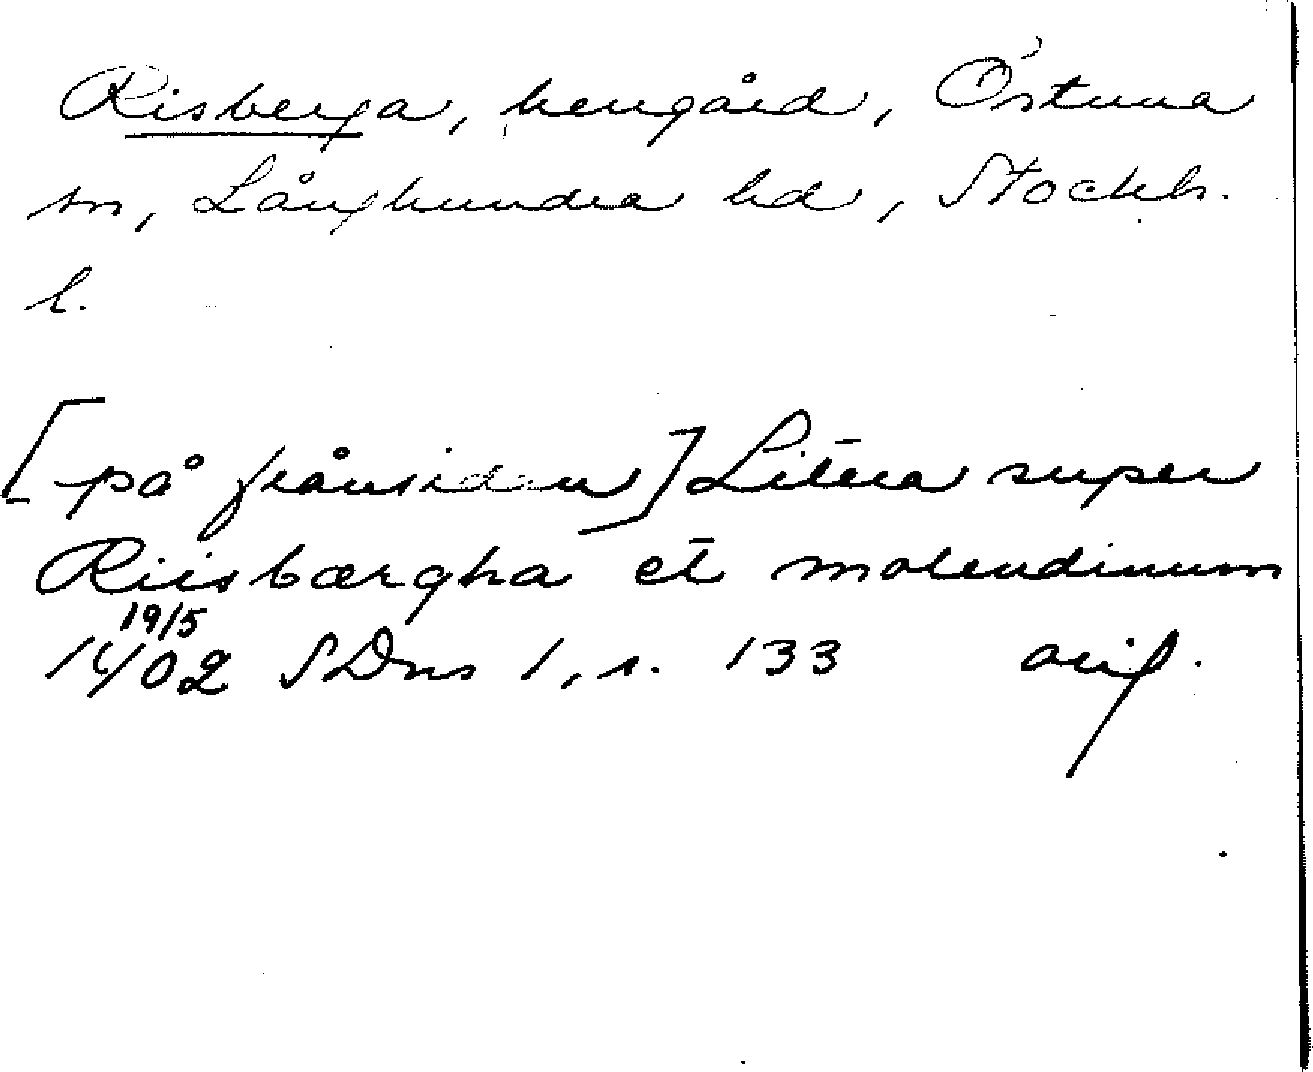 Risberga, herrgård, Östuna
sn, Långhundra hd, Stockh.
l.
[på frånsidan] Litera super
Riisbærgha et molendinum
19/5
1402 SDns 1, s. 133 orig.